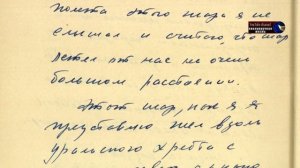 полета этого шара я не
слышал и считаю, что шар
летел от нас не очень
большом расстоянии.
Этот шар, как я
представлю шел вдоль
уральского хребта с